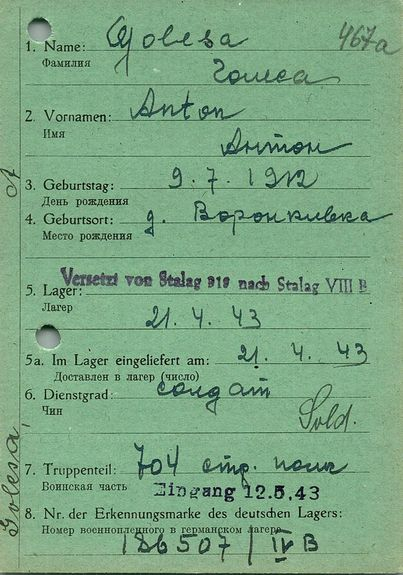 467a
1. Name: Golesa
ФамилияГолеса
2. Vornamen: Anton
Имя Антон
3. Geburtstag: 9. 7. 1912
День рождения
4. Geburtsort: д. Воронкивка
Место рождения
Versetzt von Stalag 319 nach Stalag VIII B
5. Lager:
Лагер 21. 4. 43
5a. Im Lager eingeliefert am: 21. 4. 43
Доставлен в лагер (число)
6. Dienstgrad: солдат
Чин Sold.
7. Truppenteil: 704 стр. полк
Воинская часть Eingang 12.5.43
8. Nr. der Erkennungsmarke des deutschen Lagers:
Номер военнопленного в германском лагере
186507 / IV B
Golesa, A